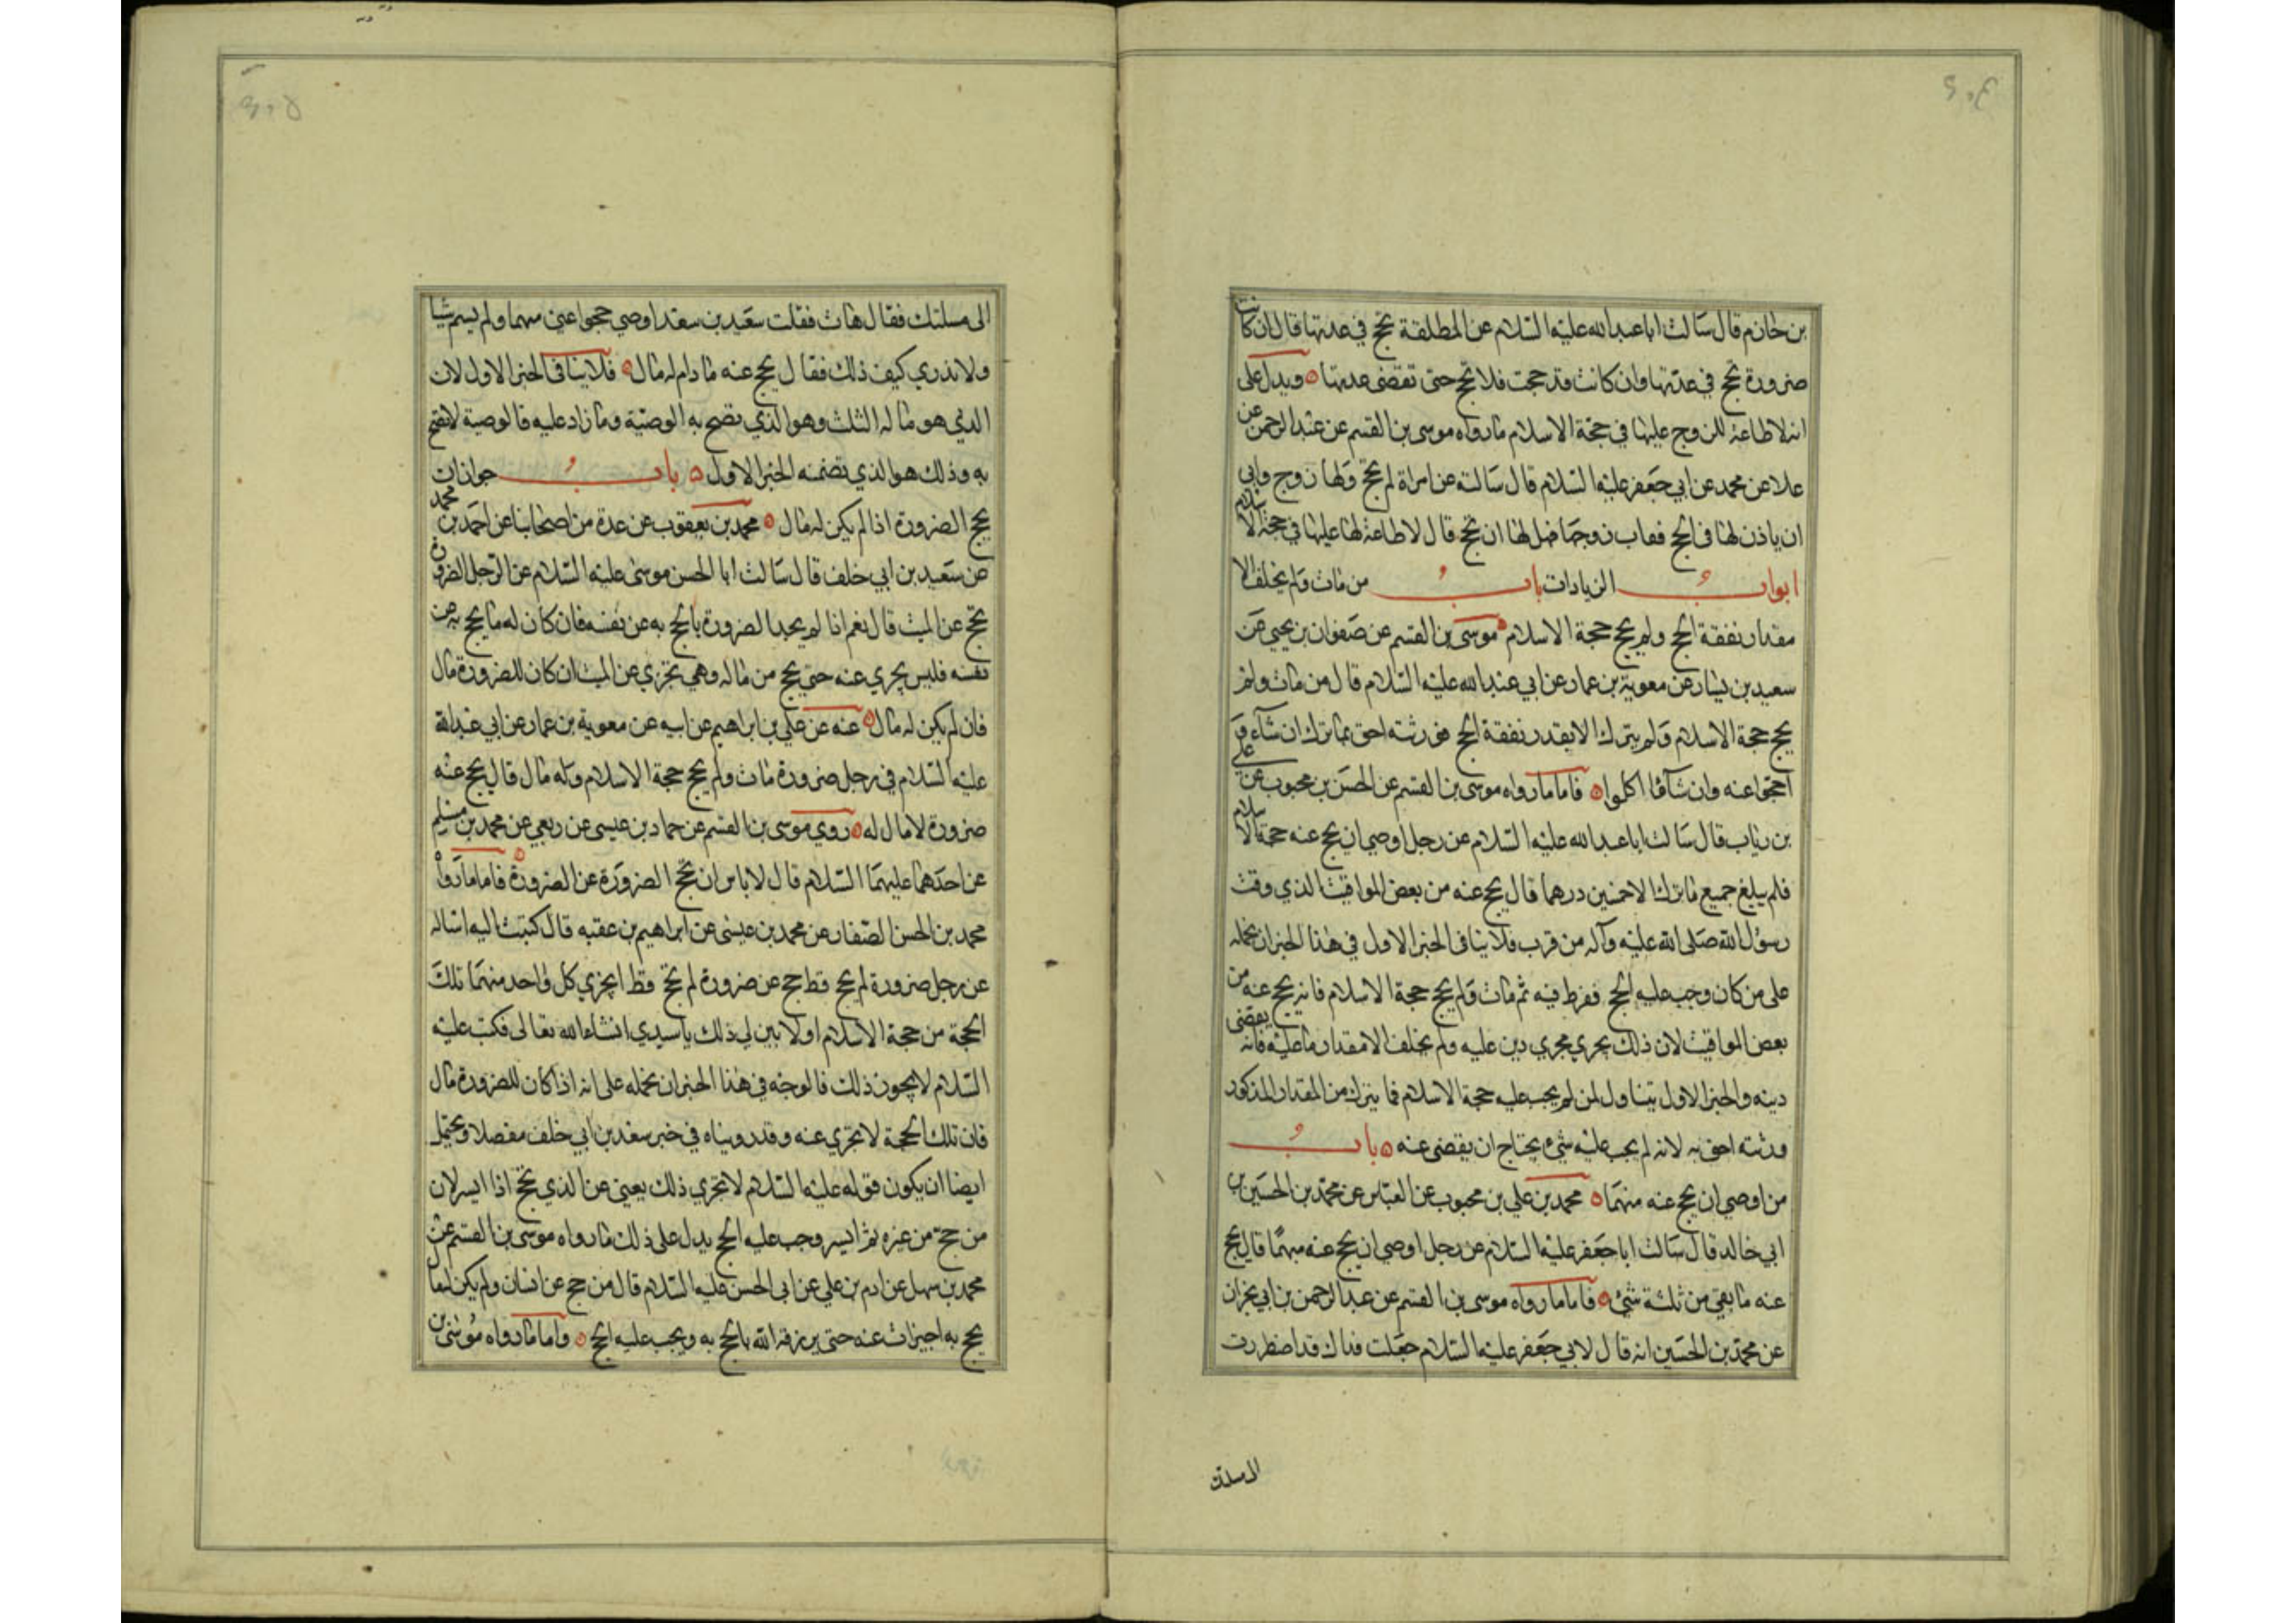 بن حازم قال سالت ابا عبدالله عليه السلام عن المطلقة تحج في عدتها قال ان كانت
صرورة تحج في عدتها وان كانت قد حجت فلا تحج حتى تقضي عدتها ويدل على
انه لا طاعة للزوج عليها في حجة الاسلام ما رواه موسى بن القسم عن عبد الرحمن عن
علا عن محمد عن ابي جعفر عليه السلام قال سالته عن امراة لم تحج ولها زوج وابى
ان ياذن لها في الحج فغاب زوجها فهل لها ان تحج قال لا طاعة لها عليها في حجة الاسلام
ابواب الزيادات باب من مات ولم يخلف الا
مقدار نفقة الحج ولم يحج حجة الاسلام موسى بن القسم عن صفوان بن يحيى عن
سعيد بن يسار عن معوية بن عمار عن ابي عبدالله عليه السلام قال من مات ولم
يحج حجة الاسلام ولم يترك الا بقدر نفقة الحج فورثته احق بما ترك ان شآءوا
احجوا عنه وان شآؤا اكلوا فاما ما رواه موسى بن القسم عن الحسن بن محبوب عن علي
بن رئاب قال سالت ابا عبد الله عليه السلام عن رجل اوصى ان يحج عنه حجة الاسلام
فلم يبلغ جميع ما ترك الا خمسين درهما قال يحج عنه من بعض المواقيت الذي وقت
رسول الله صلى الله عليه وآله من قرب فلا ينافي الخبر الاول في هذا الخبر ان نحمله
على من كان وجب عليه الحج ففرط فيه ثم مات ولم يحج حجة الاسلام فانه يحج عنه من
بعض المواقيت لان ذلك يجري مجرى دين عليه ولم يخلف الا مقدار ما عليه فانه يقضى
دينه والخبر الاول يتناول لمن لم يجب عليه حجة الاسلام فما يترك من المقدار المذكور
ورثته احق به لانه لم يجب عليه شيء يحتاج ان يقضى عنه باب
من اوصى ان يحج عنه مبهما محمد بن علي بن محبوب عن العباس عن محمد بن الحسين بن
ابي خالد قال سالت ابا جعفر عليه السلام عن رجل اوصى ان يحج عنه مبهما قال يحج
عنه ما بقي من ثلثه شيء فاما ما رواه موسى بن القسم عن عبد الرحمن بن ابي نجران
عن محمد بن الحسين انه قال لابي جعفر عليه السلام جعلت فداك قد اضطررت
الى مسلتك
الى مسلتك فقال هات فقلت سعيد بن سعد اوصى حجوا عني مبهما ولم يسم شيا
ولا ندري كيف ذلك فقال يحج عنه ما دام له مال فلا ينافي الخبر الاول لان
الذي هو ماله الثلث وهو الذي تصح به الوصية وما زاد عليه فالوصية لا تصح
به وذلك هو الذي تضمنه الخبر الاول باب جواز ان
يحج الصرورة اذا لم يكن له مال محمد بن يعقوب عن عدة من اصحابنا عن احمد بن محمد
عن سعيد بن ابي خلف قال سالت ابا الحسن موسى عليه السلام عن الرجل الصرورة
يحج عن الميت قال نعم اذا لم يجد الصرورة ما يحج به عن نفسه فان كان له ما يحج به عن
نفسه فليس يجزي عنه حتى يحج من ماله وهي تجزي عن الميت ان كان للصرورة مال
فان لم يكن له مال عنه عن علي بن ابراهيم عن ابيه عن معوية بن عمار عن ابي عبدالله
عليه السلام في رجل صرورة مات ولم يحج حجة الاسلام وله مال قال يحج عنه
صرورة لا مال له روى موسى بن القسم عن حماد بن عيسى عن ربعي عن محمد بن مسلم
عن احدهما عليهما السلام قال لا باس ان يحج الصرورة عن الصرورة فاما ما رواه
محمد بن الحسن الصفار عن محمد بن عيسى عن ابراهيم بن عقبه قال كتبت اليه اساله
عن رجل صرورة لم يحج قط حج عن صرورة لم يحج قط ايجزي كل واحد منهما تلك
الحجة من حجة الاسلام او لا بين لي ذلك يا سيدي انشاء الله تعالى فكتب عليه
السلام لا يجوز ذلك فالوجه في هذا الخبر ان نحمله على انه اذا كان للصرورة مال
فان تلك الحجة لا تجزي عنه وقد روينا ه في خبر سعد بن ابي خلف مفصلا ويحتمل
ايضا ان يكون قوله عليه السلام لا تجزي ذلك يعني عن الذي يحج اذا ايسر لان
من حج من غيره ثم ايسر وجب عليه الحج يدل على ذلك ما رواه موسى بن القسم عن
محمد بن سهل عن ادم بن علي عن ابي الحسن عليه السلام قال من حج عن انسان ولم يكن له مال
يحج به اجيزات عنه حتى يرزقه الله ما يحج به ويجب عليه الحج واما ما رواه موسى بن